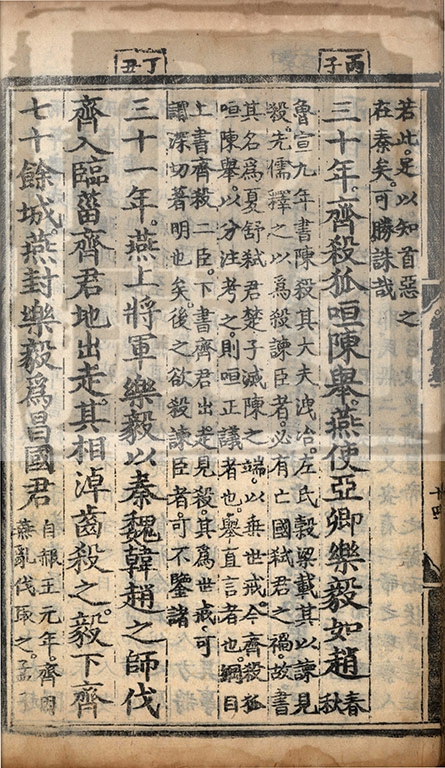 丙子
若此。是以知首惡之
在秦矣。可勝誅哉
三十年。齊殺狐咺陳舉。燕使亞卿樂毅如趙 春秋
魯宣九年書陳殺其大夫洩冶。左氏穀梁載其以諫見
殺。先儒釋之以爲殺諫臣者。必有亡國弑君之禍。故書
其名爲夏舒弑君楚子滅陳之端。以垂世戒。今齊殺狐
咺陳舉。以分注考之。則咺正議者也。舉直言者也。綱目
上書齊殺二臣。下書齊君出走見殺。其爲世戒。可
謂深切著明也矣。後之欲殺諫臣者可不鑒諸
丁丑
三十一年。燕上將軍樂毅以秦魏韓趙之師伐
齊。入臨菑。齊君地出走。其相淖齒殺之。毅下齊
七十餘城。燕封樂毅爲昌國君 自赧王元年。齊因
燕亂伐取之。孟
十四